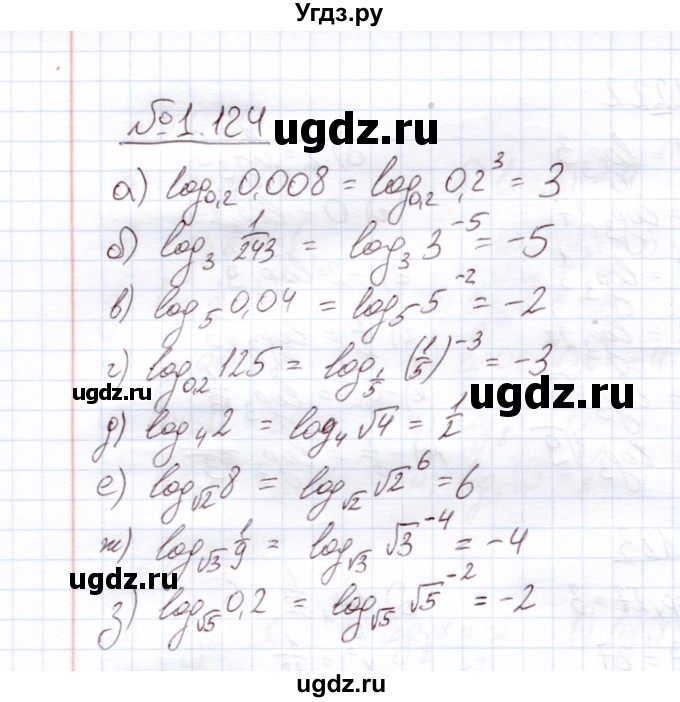 Угдз.ру
№1.124
ugdz.ru
а) log₀,₂ 0,008 = log₀,₂ 0,2³ = 3
б) log₃ 1/243 = log₃ 3⁻⁵ = -5
в) log₅ 0,04 = log₅ 5⁻² = -2
г) log₀,₂ 125 = log_{1/5} (1/5)⁻³ = -3
ugdz.ru
ugdz.ru
д) log₄ 2 = log₄ √4 = 1/2
е) log_{√2} 8 = log_{√2} √2⁶ = 6
ж) log_{√3} 1/9 = log_{√3} √3⁻⁴ = -4
ugdz.ru
з) log_{√5} 0,2 = log_{√5} √5⁻² = -2
ugdz.ru